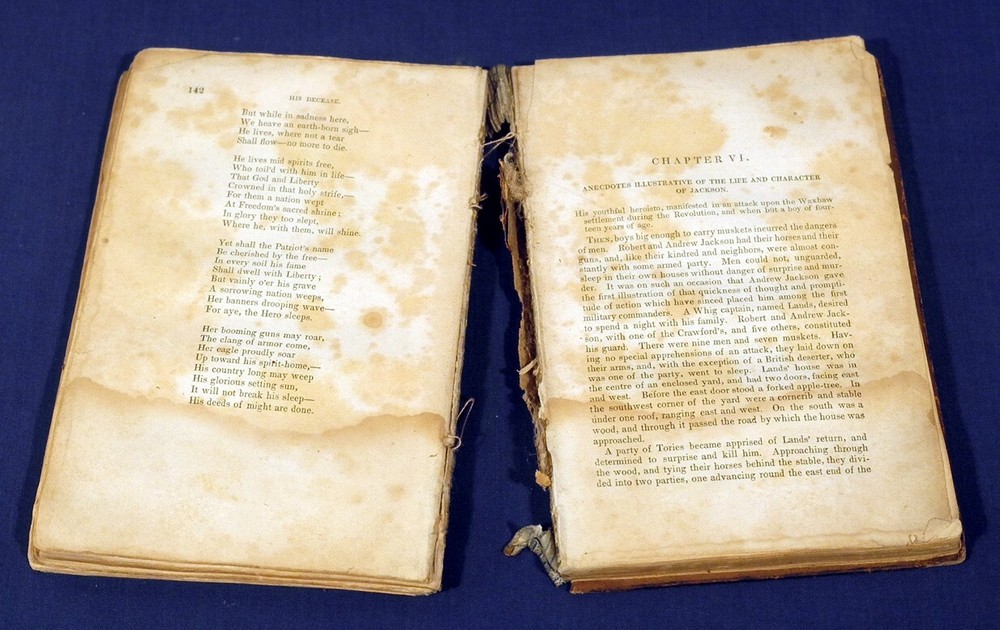 142
HIS DECEASE.
But while in sadness here,
We heave an earth-born sigh—
He lives, where not a tear
Shall flow—no more to die.
He lives mid spirits free,
Who toil'd with him in life—
That God and Liberty
Crowned in that holy strife,—
For them a nation wept
At Freedom's sacred shrine;
In glory they too slept,
Where he, with them, will shine.
Yet shall the Patriot's name
Be cherished by the free—
In every soil his fame
Shall dwell with Liberty;
But vainly o'er his grave
A sorrowing nation weeps,
Her banners drooping wave—
For aye, the Hero sleeps.
Her booming guns may roar,
The clang of armor come,
Her eagle proudly soar
Up toward his spirit-home,—
His country long may weep
His glorious setting sun,
It will not break his sleep—
His deeds of might are done.
CHAPTER VI.
ANECDOTES ILLUSTRATIVE OF THE LIFE AND CHARACTER
OF JACKSON.
His youthful heroism, manifested in an attack upon the Waxhaw
settlement during the Revolution, and when but a boy of four-
teen years of age.
THEN, boys big enough to carry muskets incurred the dangers
of men. Robert and Andrew Jackson had their horses and their
guns, and, like their kindred and neighbors, were almost con-
stantly with some armed party. Men could not, unguarded,
sleep in their own houses without danger of surprise and mur-
der. It was on such an occasion that Andrew Jackson gave
the first illustration of that quickness of thought and prompti-
tude of action which have sinced placed him among the first
military commanders. A Whig captain, named Lands, desired
to spend a night with his family. Robert and Andrew Jack-
son, with one of the Crawford's, and five others, constituted
his guard. There were nine men and seven muskets. Hav-
ing no special apprehensions of an attack, they laid down on
their arms, and, with the exception of a British deserter, who
was one of the party, went to sleep. Lands' house was in
the centre of an enclosed yard, and had two doors, facing east
and west. Before the east door stood a forked apple-tree. In
the southwest corner of the yard were a corncrib and stable
under one roof, ranging east and west. On the south was a
wood, and through it passed the road by which the house was
approached.
A party of Tories became apprised of Lands' return, and
determined to surprise and kill him. Approaching through
the wood, and tying their horses behind the stable, they divi-
ded into two parties, one advancing round the east end of the